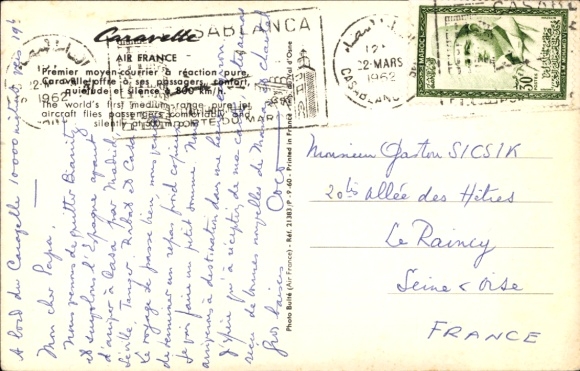 Caravelle
AIR FRANCE
Premier moyen-courrier à réaction pure,
Caravelle offre à ses passagers, confort,
quiétude et silence à 800 km/h.
The world's first medium-range pure jet
aircraft flies passengers comfortably and
silently at 500 m.p.h.
CASABLANCA
22 MARS
1962
12
22-MARS
1962
CASABLANCA
MAROC
50
A bord du Caravelle 10000 mètres
Mon cher Papa,
Nous venons de quitter Biarritz
et survolons l'Espagne avant
d'arriver à Casa par Madrid
Séville, Tanger, Rabat et Casa.
Le voyage se passe bien, nous venons
de terminer un repas froid copieux
Je vais faire un petit somme. Nous
arriverons à destination dans une
J'espère qu'à réception de ma carte tu auras
reçu de bonnes nouvelles de Maman
Gros baisers
Coco
Photo Bulté (Air France) - Réf. 21383/P - 9-60 - Printed in France
Monsieur Gaston SICSIK
20bis Allée des Hêtres
Le Raincy
Seine & Oise
FRANCE